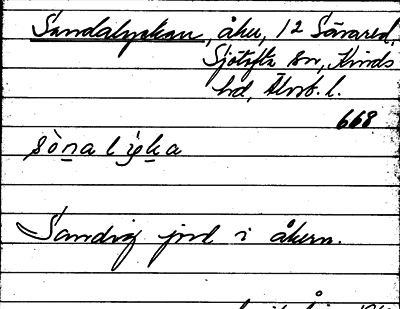 Sandalyckan, åker, 12 Sävared,
Sjötofta sn, Kinds
hd, Älvsb. l.
668
Sandig jord i åkern.